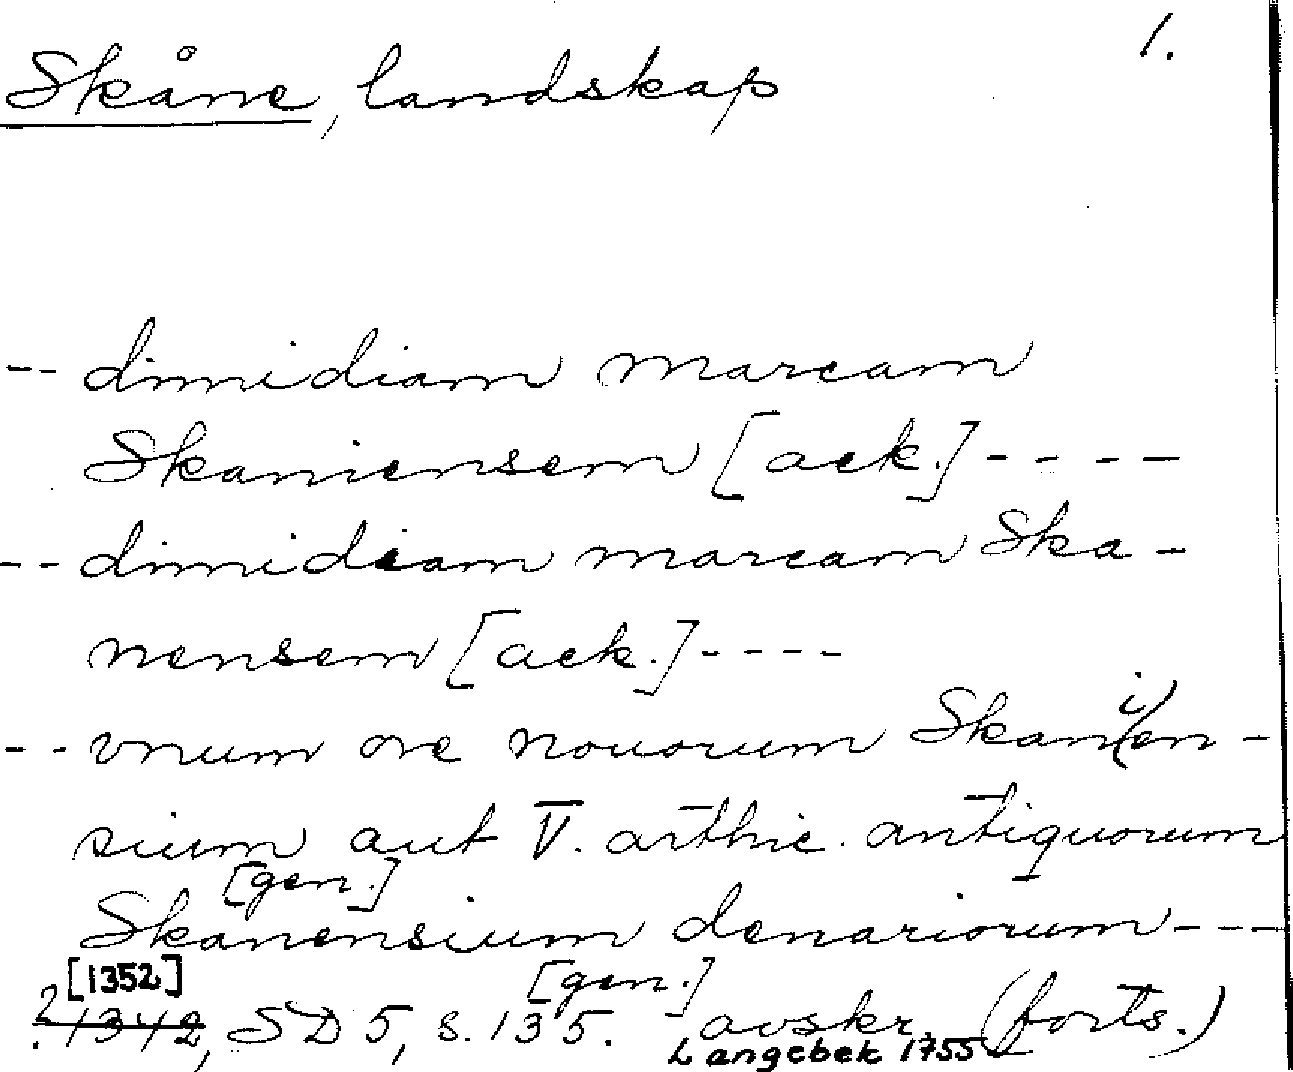 1.
Skåne, landskap
-- dimidiam marcam
Skaniensem [ack.] ----
-- dimidiam marcam Ska-
nensem [ack.] ----
-- vnum ore nouorum Skan(i)en-
sium aut V. arthic. antiquorum
[gen.]
Skanensium denariorum ---
[1352] [gen.]
? 1342, SD 5, s. 135. avskr. (forts.)
Langebek 1755